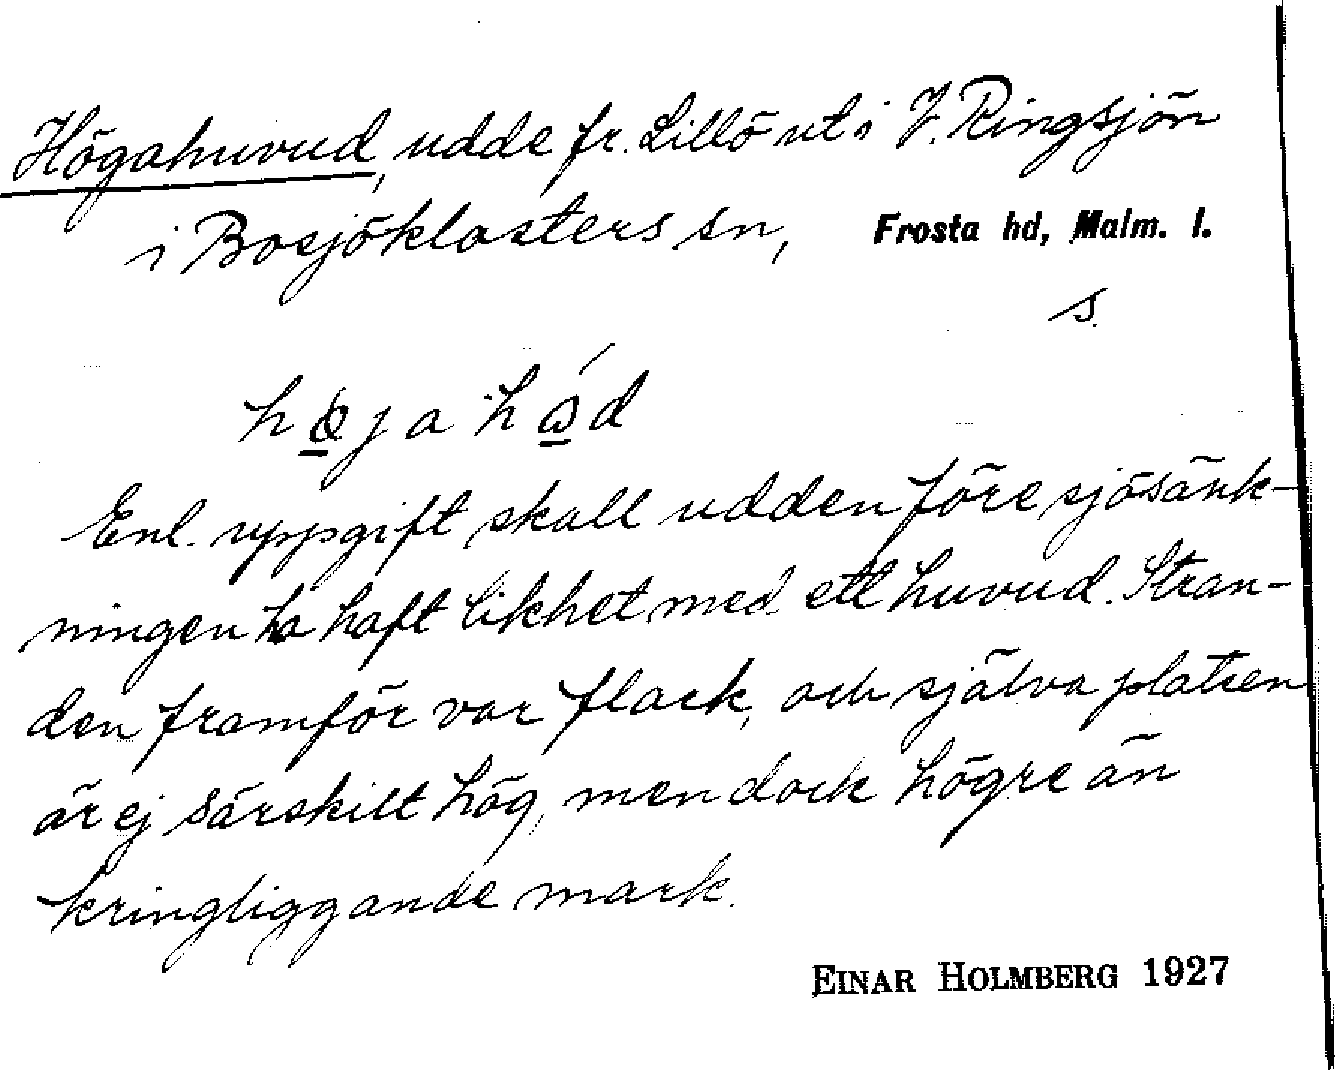 Högahuvud, udde fr. Lillö ut i V. Ringsjön
i Bosjöklosters sn, Frosta hd, Malm. l.
s.
Enl. uppgift skall udden före sjösänk-
ningen ha haft likhet med ett huvud. Stran-
den framför var flack, och själva platsen
är ej särskilt hög, men dock högre än
kringliggande mark.
EINAR HOLMBERG 1927